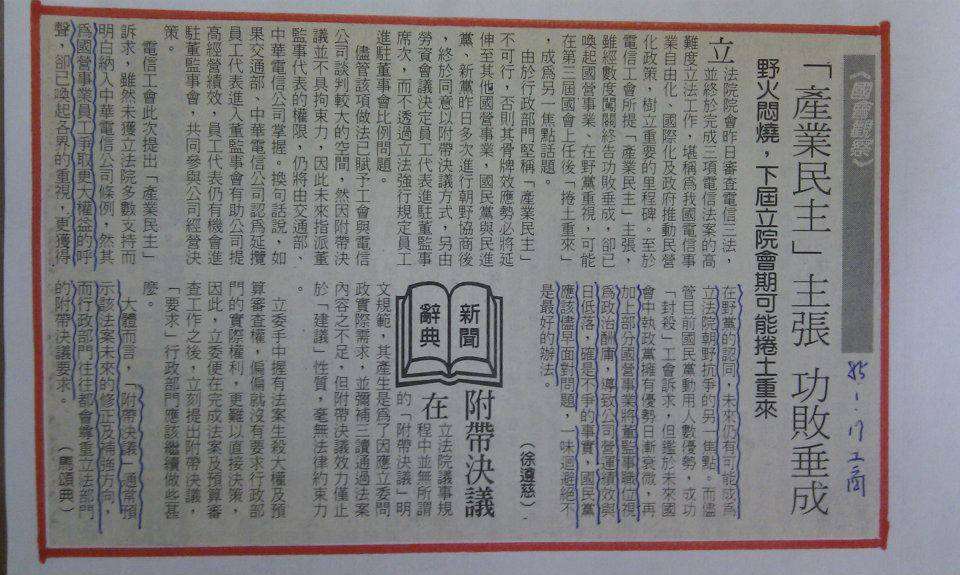 《國會觀察》
「產業民主」主張 功敗垂成
野火悶燒，下屆立院會期可能捲土重來
85.1.17 工商
立法院院會昨日審查電信三法，
並終於完成三項電信法案的高
難度立法工作，堪稱為我國電信事
業自由化、國際化及政府推動民營
化政策，樹立重要的里程碑。至於
電信工會所提「產業民主」主張，
雖經數度闖關終告功敗垂成，卻已
喚起國營事業、在野黨重視，可能
在第三屆國會上任後「捲土重來」
，成為另一焦點話題。
由於行政部門堅稱「產業民主」
不可行，否則其骨牌效應勢必將延
伸至其他國營事業、國民黨與民進
黨、新黨昨日多次進行朝野協商後
，終於同意以附帶決議方式，另由
勞資會議決定員工代表進駐董監事
席次，而不透過立法強行規定員工
進駐董事會比例問題。
儘管該項做法已賦予工會與電信
公司談判較大的空間，然因附帶決
議並不具拘束力，因此未來指派董
監事代表的權限，仍將由交通部、
中華電信公司掌握。換句話說，如
果交通部、中華電信公司認為延攬
員工代表進入董監事會有助公司提
高經營績效，員工代表仍有機會進
駐董監事會，共同參與公司經營決
策。
電信工會此次提出「產業民主」
訴求，雖然未獲立法院多數支持而
明白納入中華電信公司條例，然其
為國營事業員工爭取更大權益的呼
聲，卻已喚起各界的重視，更獲得
在野黨的認同，未來仍有可能成為
立法院朝野抗爭的另一焦點。而儘
管目前國民黨動用人數優勢，成功
「封殺」工會訴求，但鑑於未來國
會中執政黨擁有優勢日漸衰微，再
加上部分國營事業將董監事職位視
為政治酬庸，導致公司營運績效與
日低落，確是不爭的事實，國民黨
應該儘早面對問題，一味迴避絕不
是最好的辦法。
（徐遵慈）
新聞辭典
附帶決議
在立法院議事規
程中並無所謂
的「附帶決議」明
文規範，其產生是為了因應立委問
政實際需求，並彌補三讀通過法案
內容之不足，但附帶決議效力僅止
於「建議」性質，毫無法律約束力
。
立委手中握有法案生殺大權及預
算審查權，偏偏就沒有要求行政部
門的實際權利，更難以直接決策，
因此，立委便在完成法案及預算審
查工作之後，立刻提出附帶決議，
「要求」行政部門應該繼續做些甚
麼。
大體而言，「附帶決議」通常預
示該法案未來的修正及補強方向，
而行政部門往往都會尊重立法部門
的附帶決議要求。
（馬頌典）